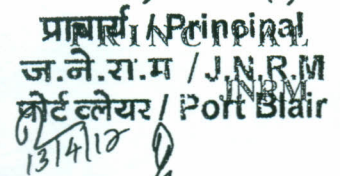 प्राचार्य / Principal
PRINCIPAL
ज.ने.रा.म / J.N.R.M
JNRM
पोर्ट ब्लेयर / Port Blair
13/4/12